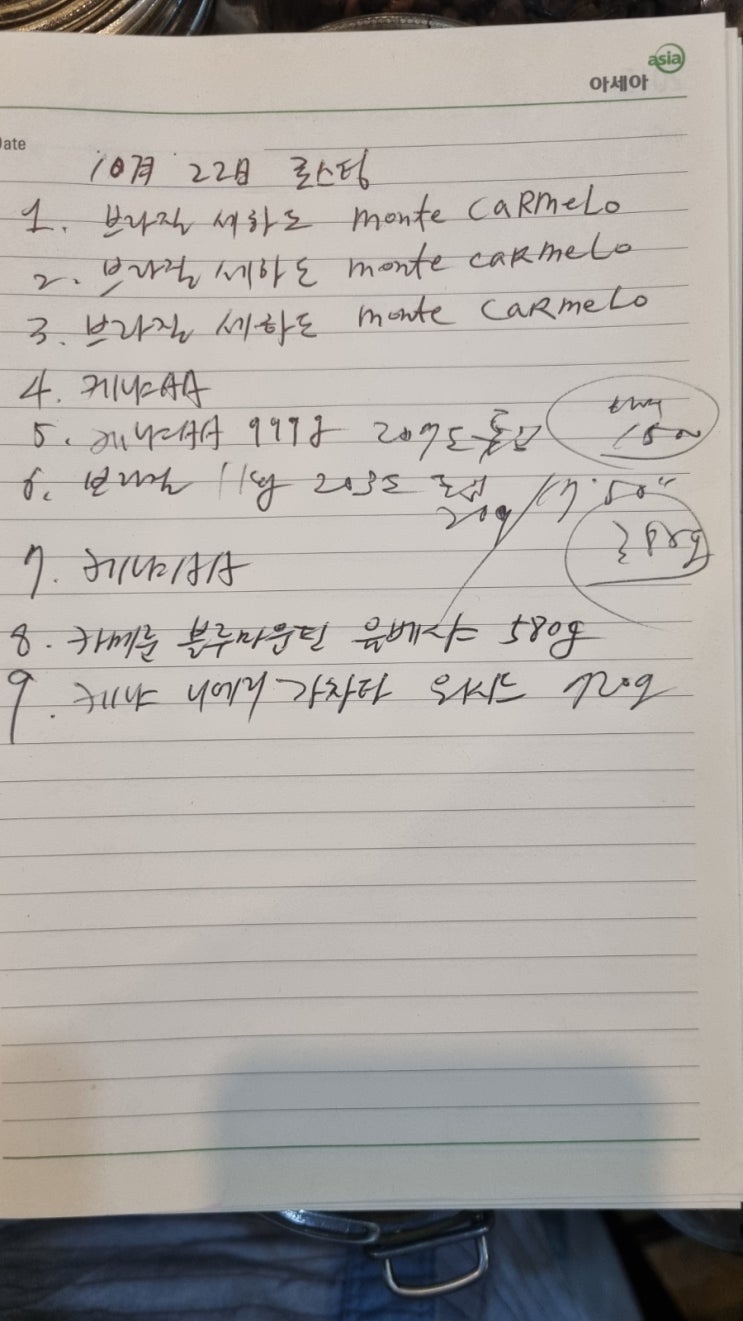 asia
아세아
Date
10월 22日 로스팅
1. 브라질 세하도 monte CARMeLo
2. 브라질 세하도 monte CARmeLo
3. 브라질 세하도 monte CaRmeLo
4. 케냐AA
5. 케냐AA 999g 207도
150
6. 브라질 11kg 203도
20g / 17.50"
7. 케냐AA
8. 카메룬 블루마운틴 580g
9. 케냐 니에리 가차타 워시드 720g